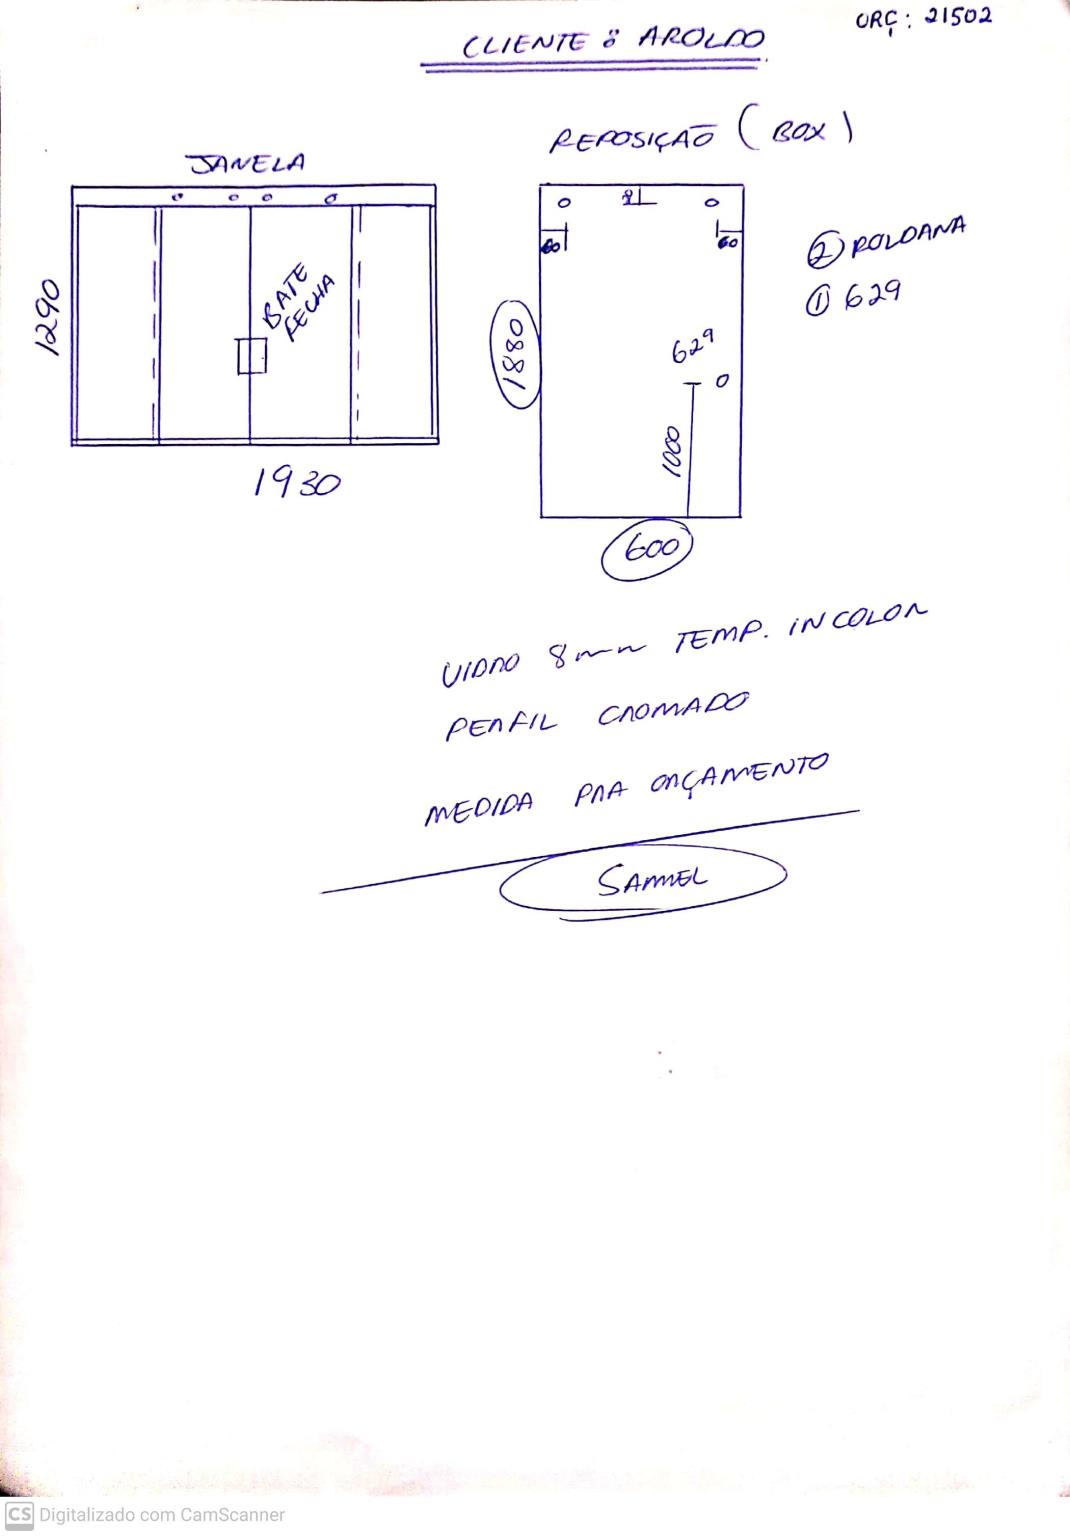 ORÇ: 21502
CLIENTE: AROLDO
JANELA
1290
BATE
FECHA
1930
REPOSIÇÃO (BOX)
60
60
1880
629
1000
600
② ROLDANA
① 629
VIDRO 8mm TEMP. INCOLOR
PERFIL CROMADO
MEDIDA PRA ORÇAMENTO
SAMUEL
CS Digitalizado com CamScanner